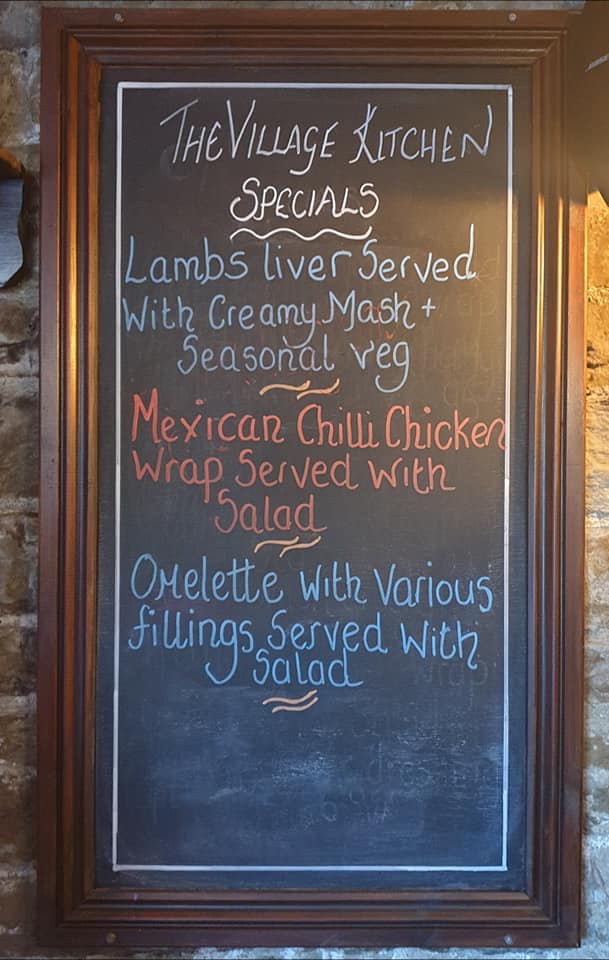 THE VILLAGE KITCHEN
SPECIALS
Lambs liver Served
With Creamy Mash +
Seasonal veg
Mexican Chilli Chicken
Wrap Served with
Salad
Omelette with Various
fillings Served With
Salad